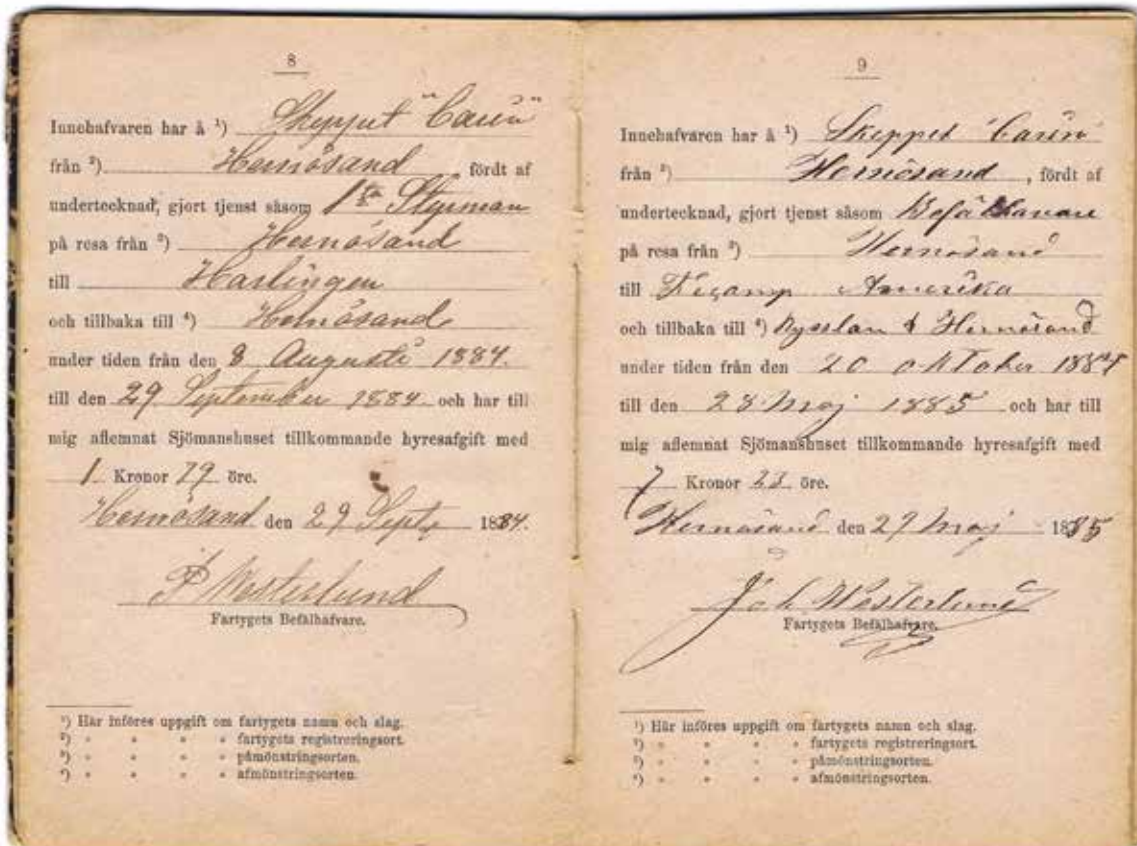 8
Innehafvaren har å ¹) Skeppet "Carin"
från ²) Hernösand, fördt af
undertecknad, gjort tjenst såsom 1sta Styrman
på resa från ³) Hernösand
till Harlingen
och tillbaka till ⁴) Hernösand
under tiden från den 8 Augusti 1884.
till den 29 September 1884 och har till
mig aflemnat Sjömanshuset tillkommande hyresafgift med
1 Kronor 79 öre.
Hernösand den 29 Septr 1884.
Westerlund
Fartygets Befälhafvare.
¹) Här införes uppgift om fartygets namn och slag.
²) " " " " fartygets registreringsort.
³) " " " " påmönstringsorten.
⁴) " " " " afmönstringsorten.
9
Innehafvaren har å ¹) Skeppet "Carin"
från ²) Hernösand, fördt af
undertecknad, gjort tjenst såsom
på resa från ³) Hernösand
till Fecamp Amerika
och tillbaka till ⁴) Rysslan & Hernösand
under tiden från den 20 oktober 1884
till den 28 Maj 1885 och har till
mig aflemnat Sjömanshuset tillkommande hyresafgift med
7 Kronor 23 öre.
Hernösand den 29 Maj 1885
Joh Westerlund
Fartygets Befälhafvare.
¹) Här införes uppgift om fartygets namn och slag.
²) " " " " fartygets registreringsort.
³) " " " " påmönstringsorten.
⁴) " " " " afmönstringsorten.